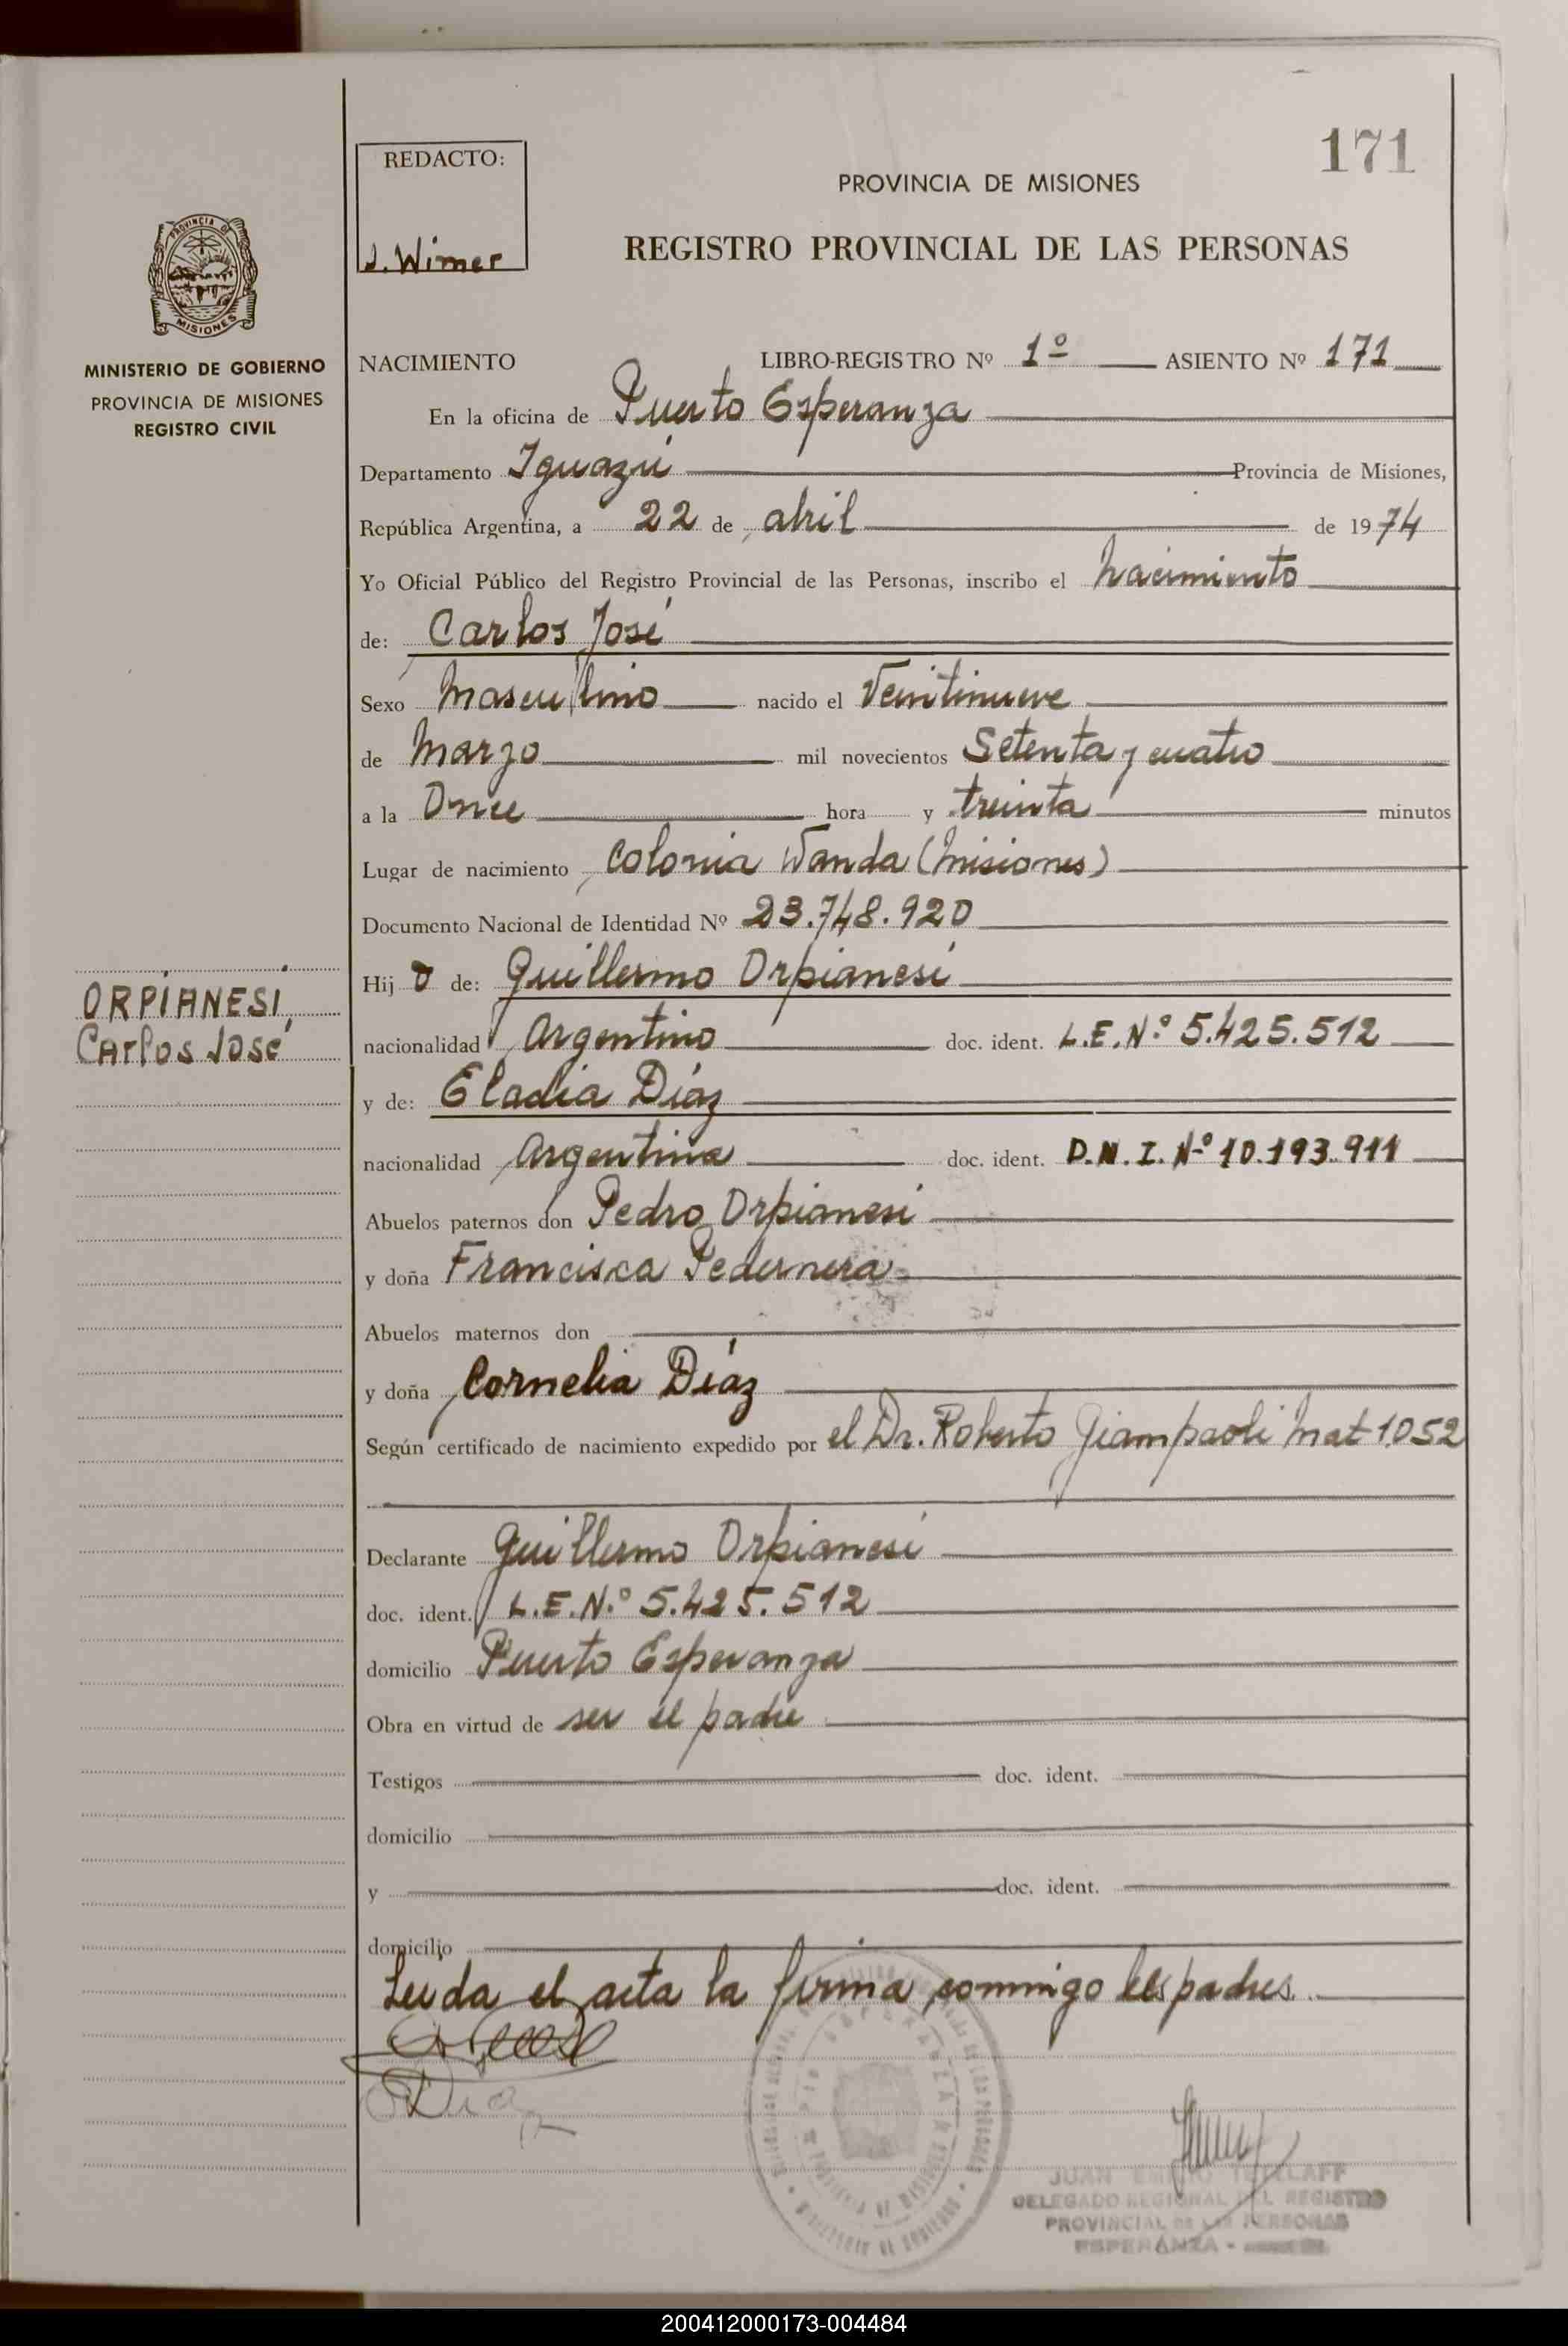 171
REDACTO:
J. Wimer
PROVINCIA DE MISIONES
REGISTRO PROVINCIAL DE LAS PERSONAS
PROVINCIA DE
MISIONES
MINISTERIO DE GOBIERNO
PROVINCIA DE MISIONES
REGISTRO CIVIL
NACIMIENTO LIBRO-REGISTRO Nº 1º ASIENTO Nº 171
En la oficina de Puerto Esperanza
Departamento Iguazú Provincia de Misiones,
República Argentina, a 22 de abril de 1974
Yo Oficial Público del Registro Provincial de las Personas, inscribo el nacimiento
de: Carlos José
Sexo Masculino nacido el Veintinueve
de Marzo mil novecientos Setenta y cuatro
a la Once hora y treinta minutos
Lugar de nacimiento Colonia Wanda (Misiones)
Documento Nacional de Identidad Nº 23.748.920
Hijo de: Guillermo Orpianesi
ORPIANESI,
Carlos José
nacionalidad Argentino doc. ident. L.E.N.º 5.425.512
y de: Eladia Díaz
nacionalidad Argentina doc. ident. D.N.I. Nº 10.193.911
Abuelos paternos don Pedro Orpianesi
y doña Francisca Pedernera
Abuelos maternos don
y doña Cornelia Díaz
Según certificado de nacimiento expedido por el Dr. Roberto Giampaoli Mat 1.052
Declarante Guillermo Orpianesi
doc. ident. L.E.N.º 5.425.512
domicilio Puerto Esperanza
Obra en virtud de ser el padre
Testigos doc. ident.
domicilio
y doc. ident.
domicilio
Leida el acta la firma conmigo los padres
Diaz
JUAN
DELEGADO REGIONAL DEL REGISTRO
PROVINCIAL DE LAS PERSONAS
ESPERANZA -
200412000173-004484